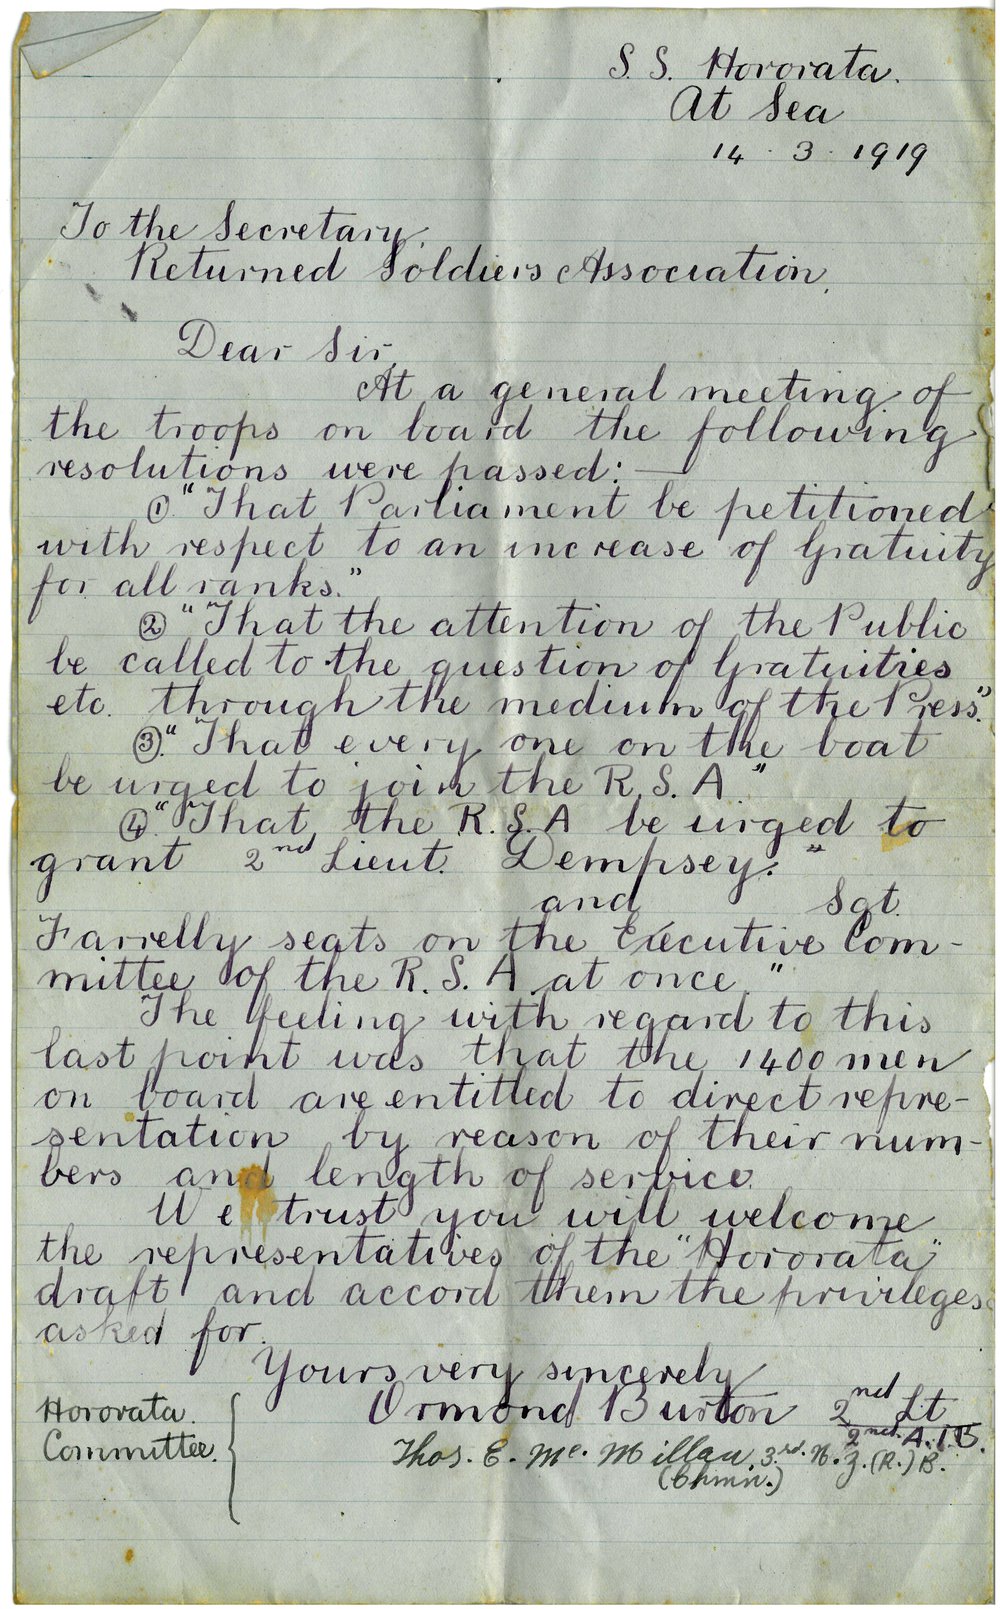 S. S. Hororata.
At Sea
14 · 3 · 1919
To the Secretary,
Returned Soldiers Association,
Dear Sir,
At a general meeting of
the troops on board the following
resolutions were passed:—
① "That Parliament be petitioned
with respect to an increase of Gratuity
for all ranks."
② "That the attention of the Public
be called to the question of Gratuities
etc. through the medium of the Press."
③. "That every one on the boat
be urged to join the R. S. A"
④. "That, the R. S. A be urged to
grant 2nd Lieut. Dempsey."
and Sgt.
Farrelly seats on the Executive Com-
mittee of the R. S. A. at once."
The feeling with regard to this
last point was that the 1400 men
on board are entitled to direct repre-
sentation by reason of their num-
bers and length of service.
We trust you will welcome
the representatives of the "Hororata"
draft and accord them the privileges
asked for.
Yours very sincerely
Ormond Burton 2nd Lt
2nd A.I.B.
Hororata
Committee.
Thos. E. Mc. Millan, 3rd. N. Z. (R.) B.
(Chmn.)